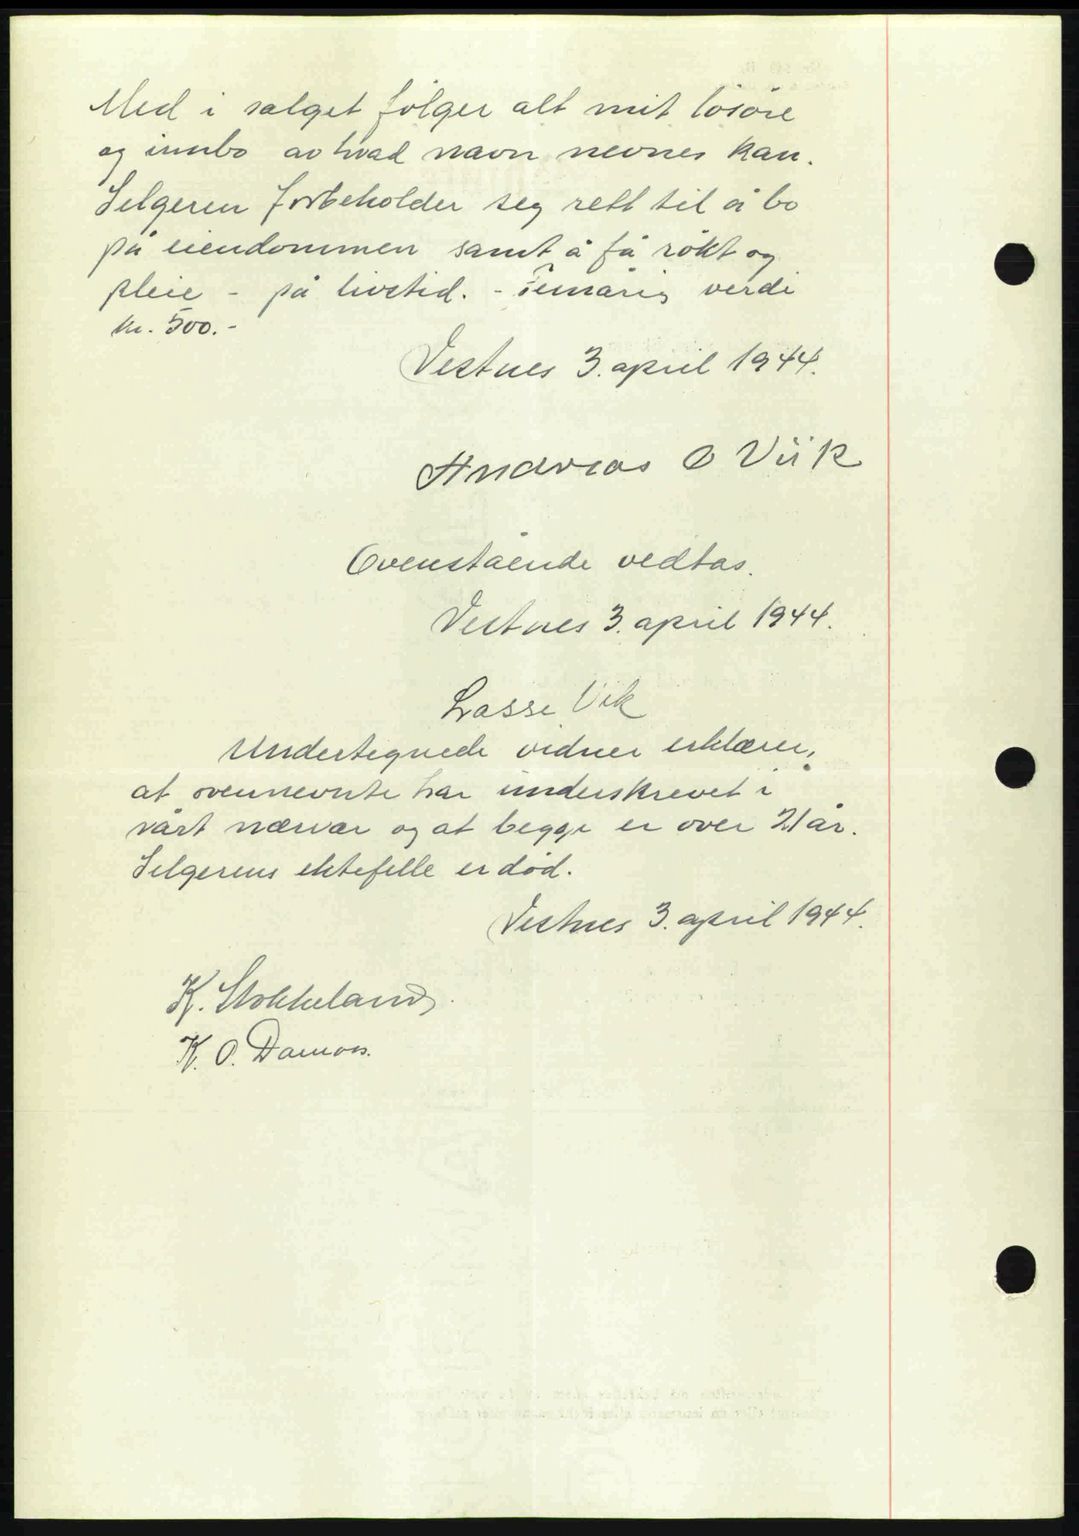 Med i salget følger alt mit løsøre
og innbo av hvad navn nevnes kan.
Selgeren forbeholder seg rett til å bo
på eiendommen samt å få røkt og
pleie - på livstid. - Femårig verdi
kr. 500.-
Vestnes 3. april 1944.
Andreas O Viik
Ovenstående vedtas.
Vestnes 3. april 1944.
Lasse Vik
Undertegnede vidner erklærer,
at ovennevnte har underskrevet i
vårt nærvær og at begge er over 21 år.
Selgerens ektefelle er død.
Vestnes 3. april 1944.
K. Stokkeland.
K. O. Damos.